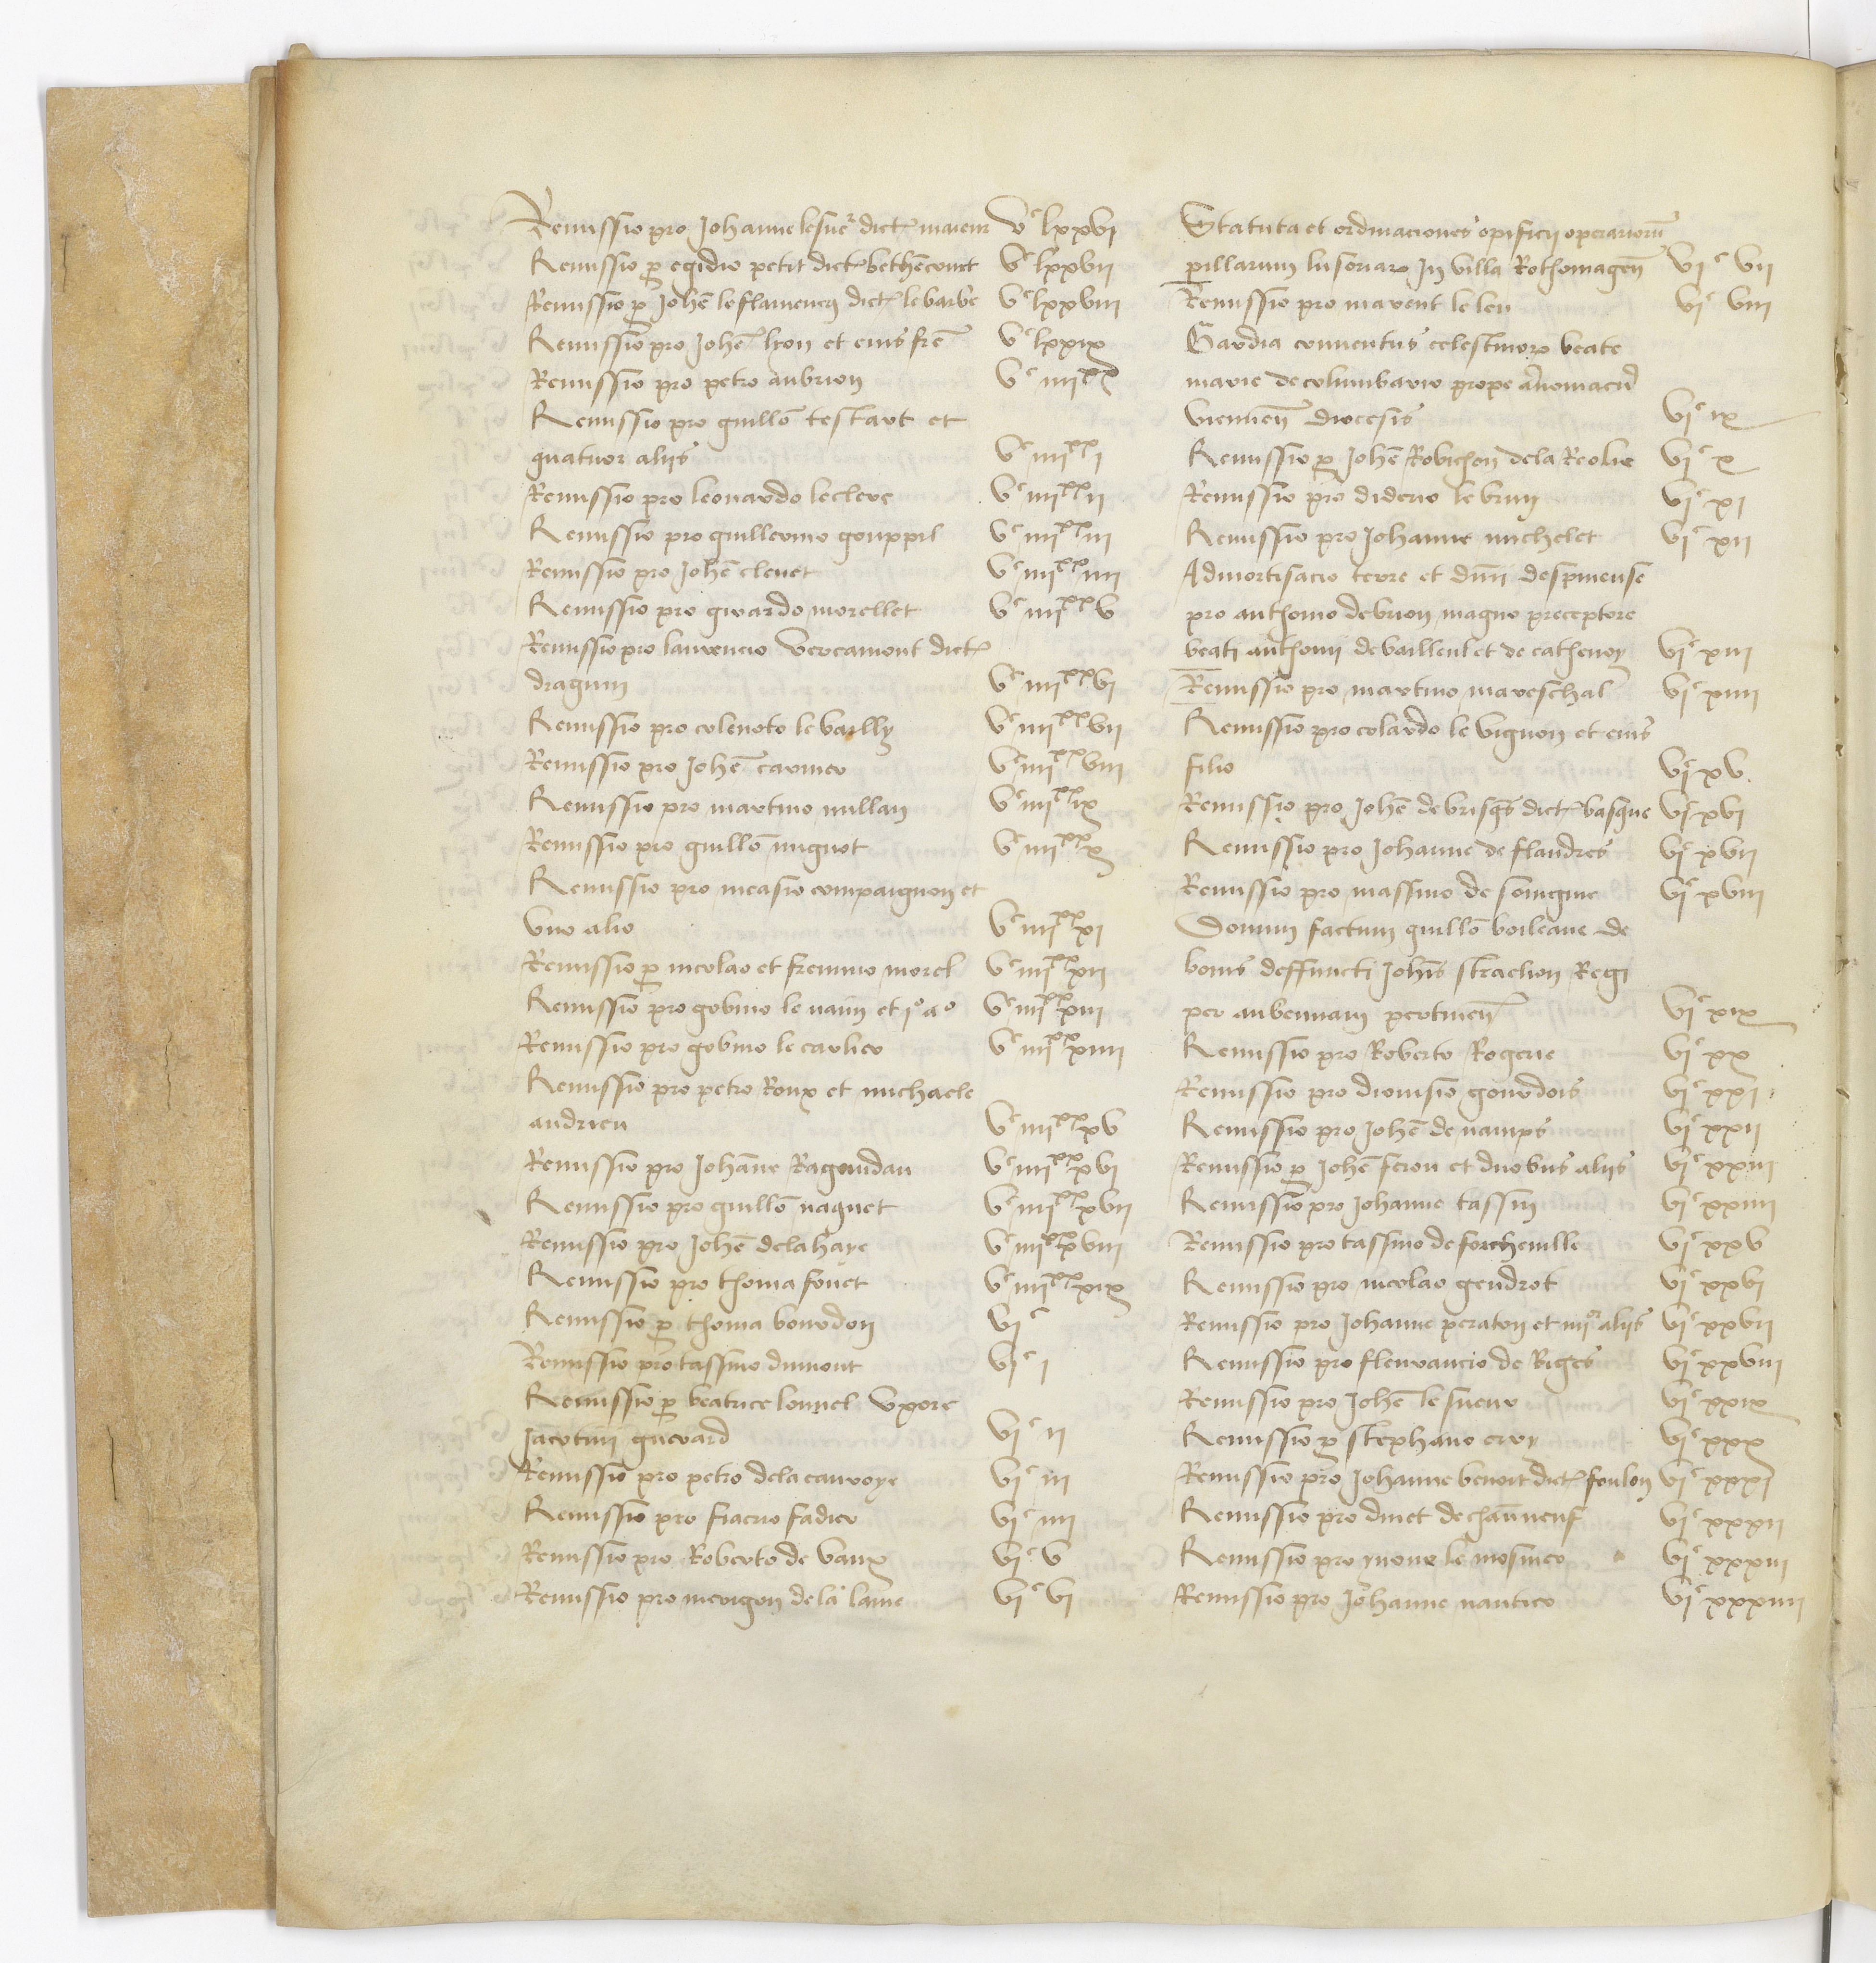 Remissio pro Johanne lesue dict maieur Vc lxxvi
Remissio p egidio petit dict bethecourt Vc lxxvii
Remissio p Johe leflamenc dict le barbe Vc lxxviii
Remissio pro Johe lyon et eius fre Vc lxxix
Remissio pro petro aubrion Vc iiiixx
Remissio pro guillo testart et
quatuor aliis Vc iiiixx i
Remissio pro leonardo leclerc Vc iiiixx ii
Remissio pro guillermo gouppil Vc iiiixx iii
Remissio pro Johe clenet Vc iiiixx iiii
Remissio pro girardo morellet Vc iiiixx v
Remissio pro laurencio Vercamont dict
dragum Vc iiiixx vi
Remissio pro colenoto le bailly Vc iiiixx vii
Remissio pro Johe carmer Vc iiiixx viii
Remissio pro martino millan Vc iiiixx ix
Remissio pro guillo mignot Vc iiiixx x
Remissio pro nicasio compaignon et
vno alio Vc iiiixx xi
Remissio p nicolao et firmino morel Vc iiiixx xii
Remissio pro gobino le nain et io ao Vc iiiixx xiii
Remissio pro gobino le carlier Vc iiiixx xiiii
Remissio pro petro Roux et michaele
andrieu Vc iiiixx xv
Remissio pro Johane Ragondau Vc iiiixx xvi
Remissio pro guillo naquet Vc iiiixx xvii
Remissio pro Johe delahaye Vc iiiixx xviii
Remissio pro thoma fouet Vc iiiixx xix
Remissio p thoma bourdon vic
Remissio pro tassino dumont vic i
Remissio p beatrice lonnel vxore
Jacotini guerard vic ii
Remissio pro petro dela carroye vic iii
Remissio pro fiacrio fadier vic iiii
Remissio pro Roberto de vaux vic v
Remissio pro merigon de la lame vic vi
Statuta et ordinaciones opificii operarioru
pillarum lusoriar in villa Rothomagen vic vii
Remissio pro marent le leu vic viii
Gardia conuentus celestinor beate
marie de columbario prope
viennen diocesis vic ix
Remissio p Johe Robichon dela Reolie vic x
Remissio pro diderio le brun vic xi
Remissio pro Johanne michelet vic xii
Admortisacio terre et dnii despineuse
pro anthonio de brion magno preceptore
beati anthonii de bailleul et de cathenoy vic xiii
Remissio pro martino mareschal vic xiiii
Remissio pro colardo le vignon et eius
filio vic xv
Remissio pro Johe de brisgs dict basque vic xvi
Remissio pro Johanne de flandres vic xvii
Remissio pro massino de soingnie vic xviii
Donum factum guillo boileaue de
bonis deffuncti Johis strachon Regi
per aubennam pertinen vic xix
Remissio pro Roberto Rogerie vic xx
Remissio pro dionisio gourdois vic xxi
Remissio pro Johe de namps vic xxii
Remissio p Johe feron et duobus aliis vic xxiii
Remissio pro Johanne tassin vic xxiiii
Remissio pro tassino de forcheuille vic xxv
Remissio pro nicolao gendrot vic xxvi
Remissio pro Johanne peraton et iiiior aliis vic xxvii
Remissio pro fleurancio de Biges vic xxviii
Remissio pro Johe le sueur vic xxix
Remissio p stephano eroy vic xxx
Remissio pro Johanne benoit dict foulon vic xxxi
Remissio pro dinet de chauneuf vic xxxii
Remissio pro yuone le mosnier vic xxxiii
Remissio pro Johanne nautier vic xxxiiii